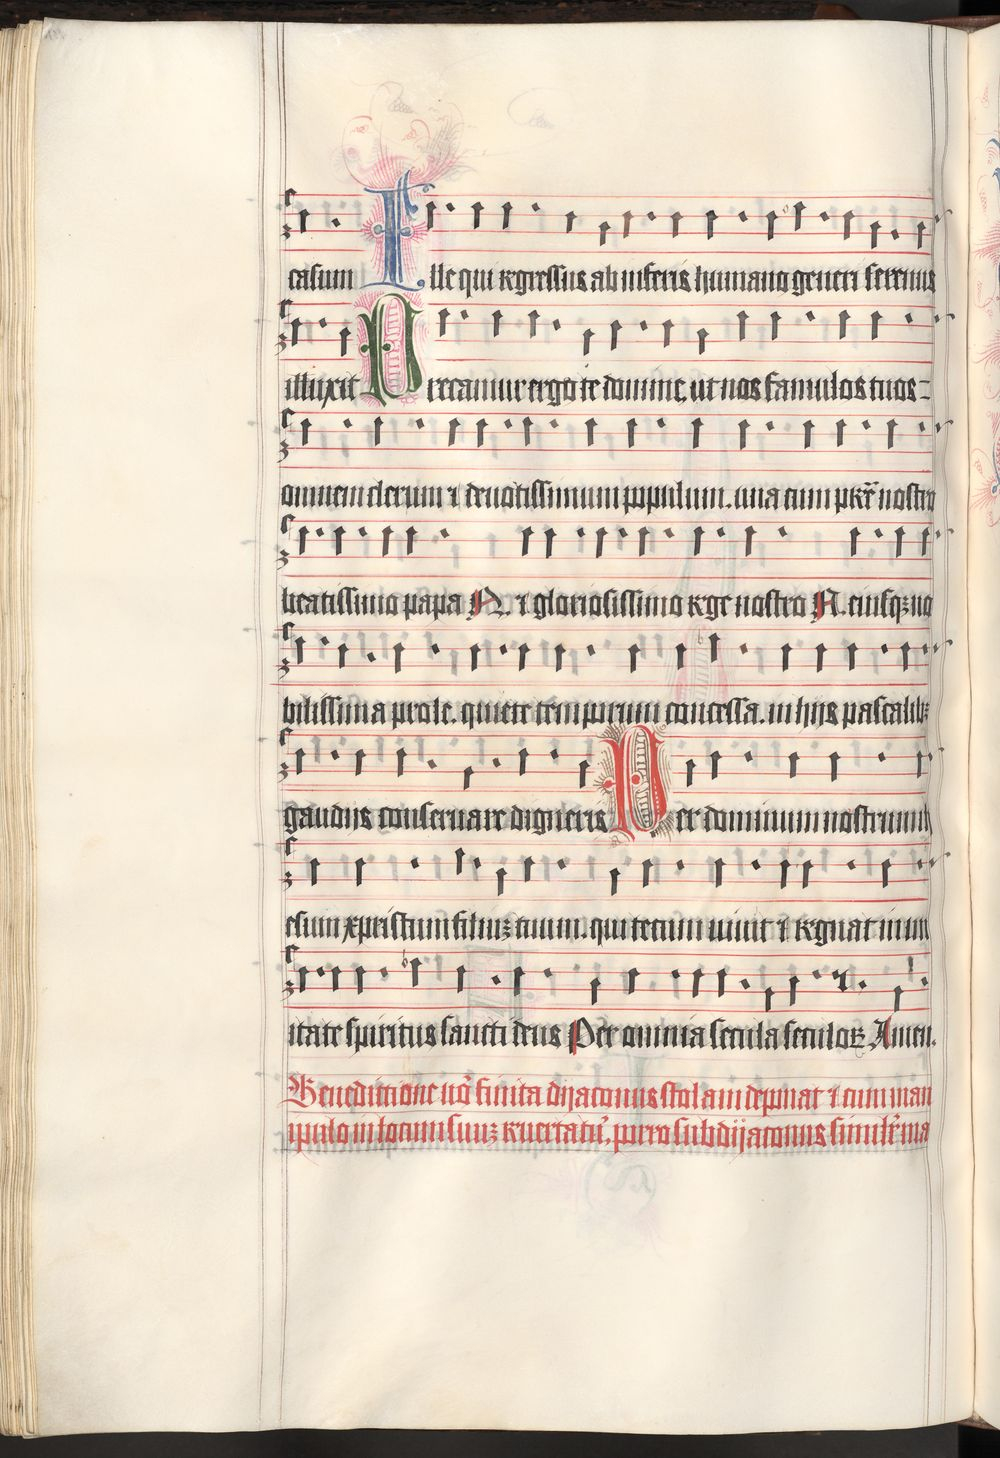 casum Ille qui regressus ab inferis humano generi serenus
illuxit Precamur ergo te domine ut nos famulos tuos =
omnem clerum ⁊ deuotissimum populum. una cum pr̄e nostro
beatissimo papa N. ⁊ gloriosissimo rege nostro N. eiusqꝫ no
bilissima prole. quiete temporum concessa. in hijs pascalibꝫ
gaudijs conseruare digneris Per dominum nostrum ih
esum xpristum filiuꝫ tuum. qui tecum uiuit ⁊ regnat in un
itate spiritus sancti deus Per omnia secula seculoꝝ Amen.
Benedictione uo᷎ finita dijaconus stolam deponat ⁊ cum man
ipulo in locum suuꝫ reuertatur᷑, porro subdijaconus similr̄ ma